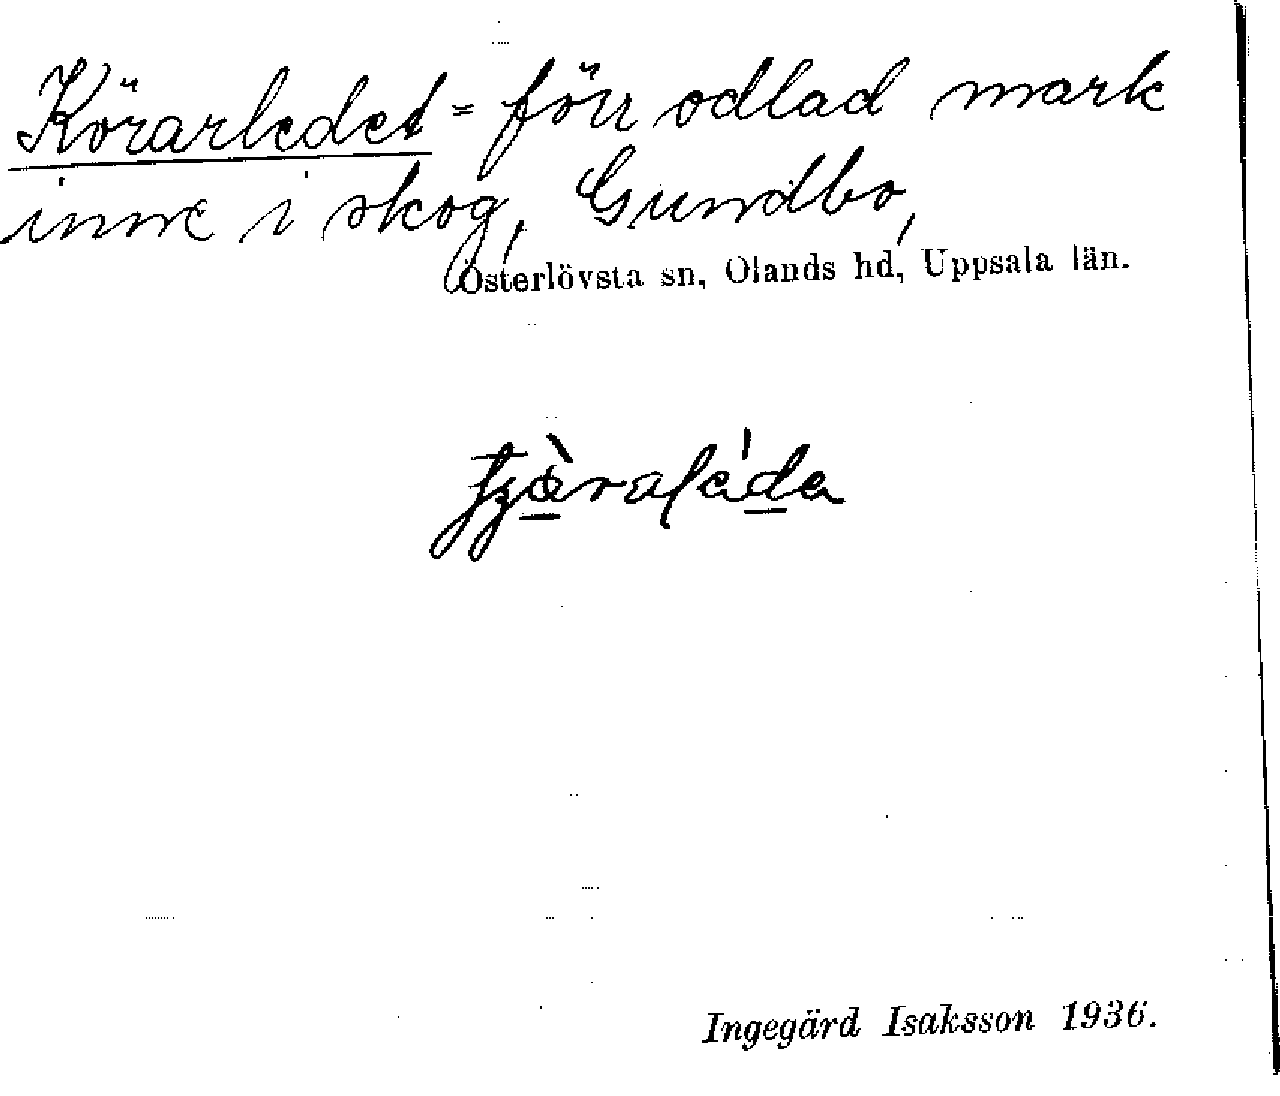 Körarledet = förr odlad mark
inne i skog, Gundbo,
Österlövsta sn, Olands hd, Uppsala län.
Ingegärd Isaksson 1936.